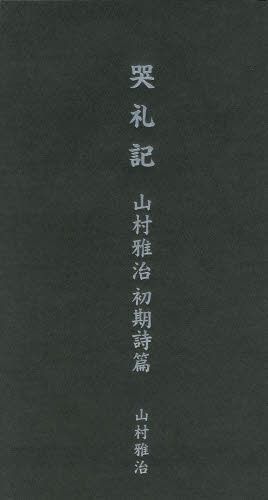 哭礼記
山村雅治 初期詩篇
山村雅治